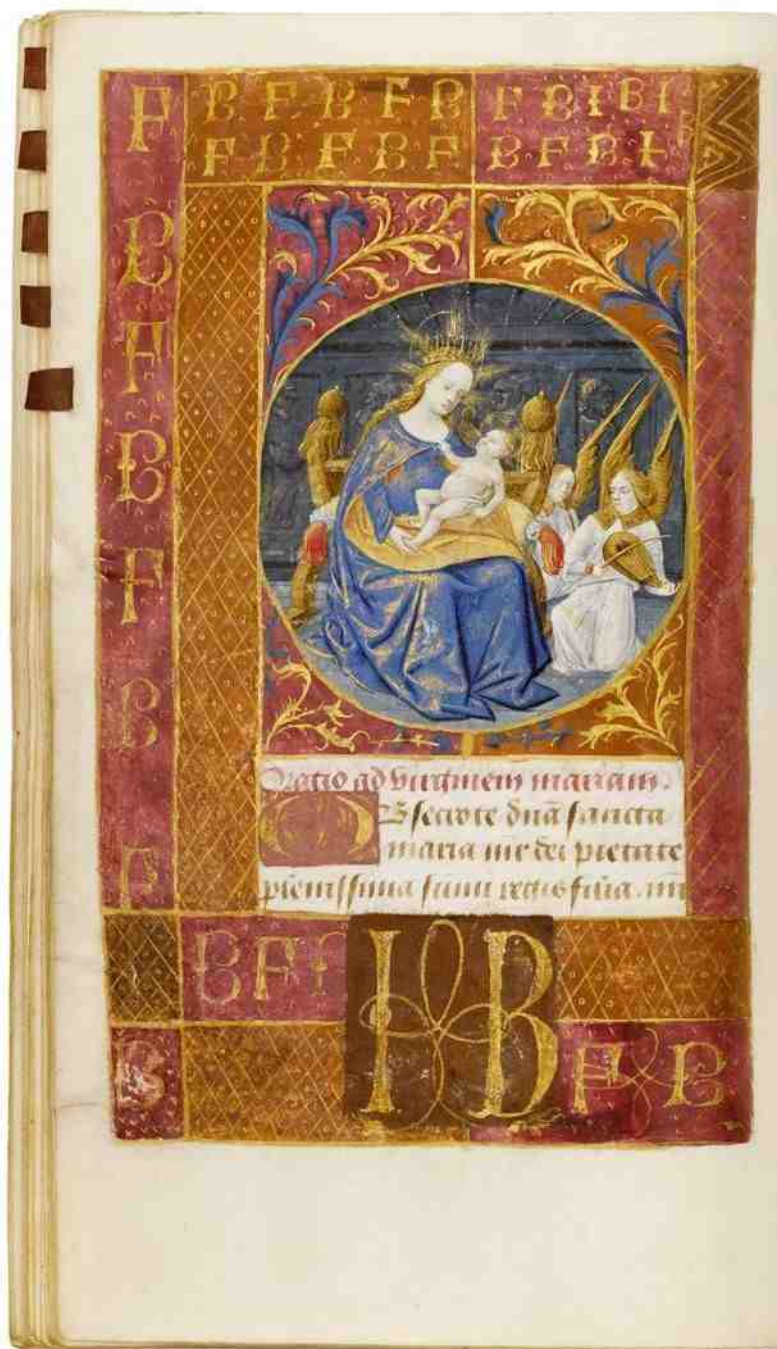 F
B F B F B F B I B I
F B F B F B F B I
B
F
B
F
B
Oratio ad virginem mariam.
OBsecrote dña sancta
maria mr̄ dei pietate
plenissima sum̄i regis filia. mr̄
B F I
I B
F B